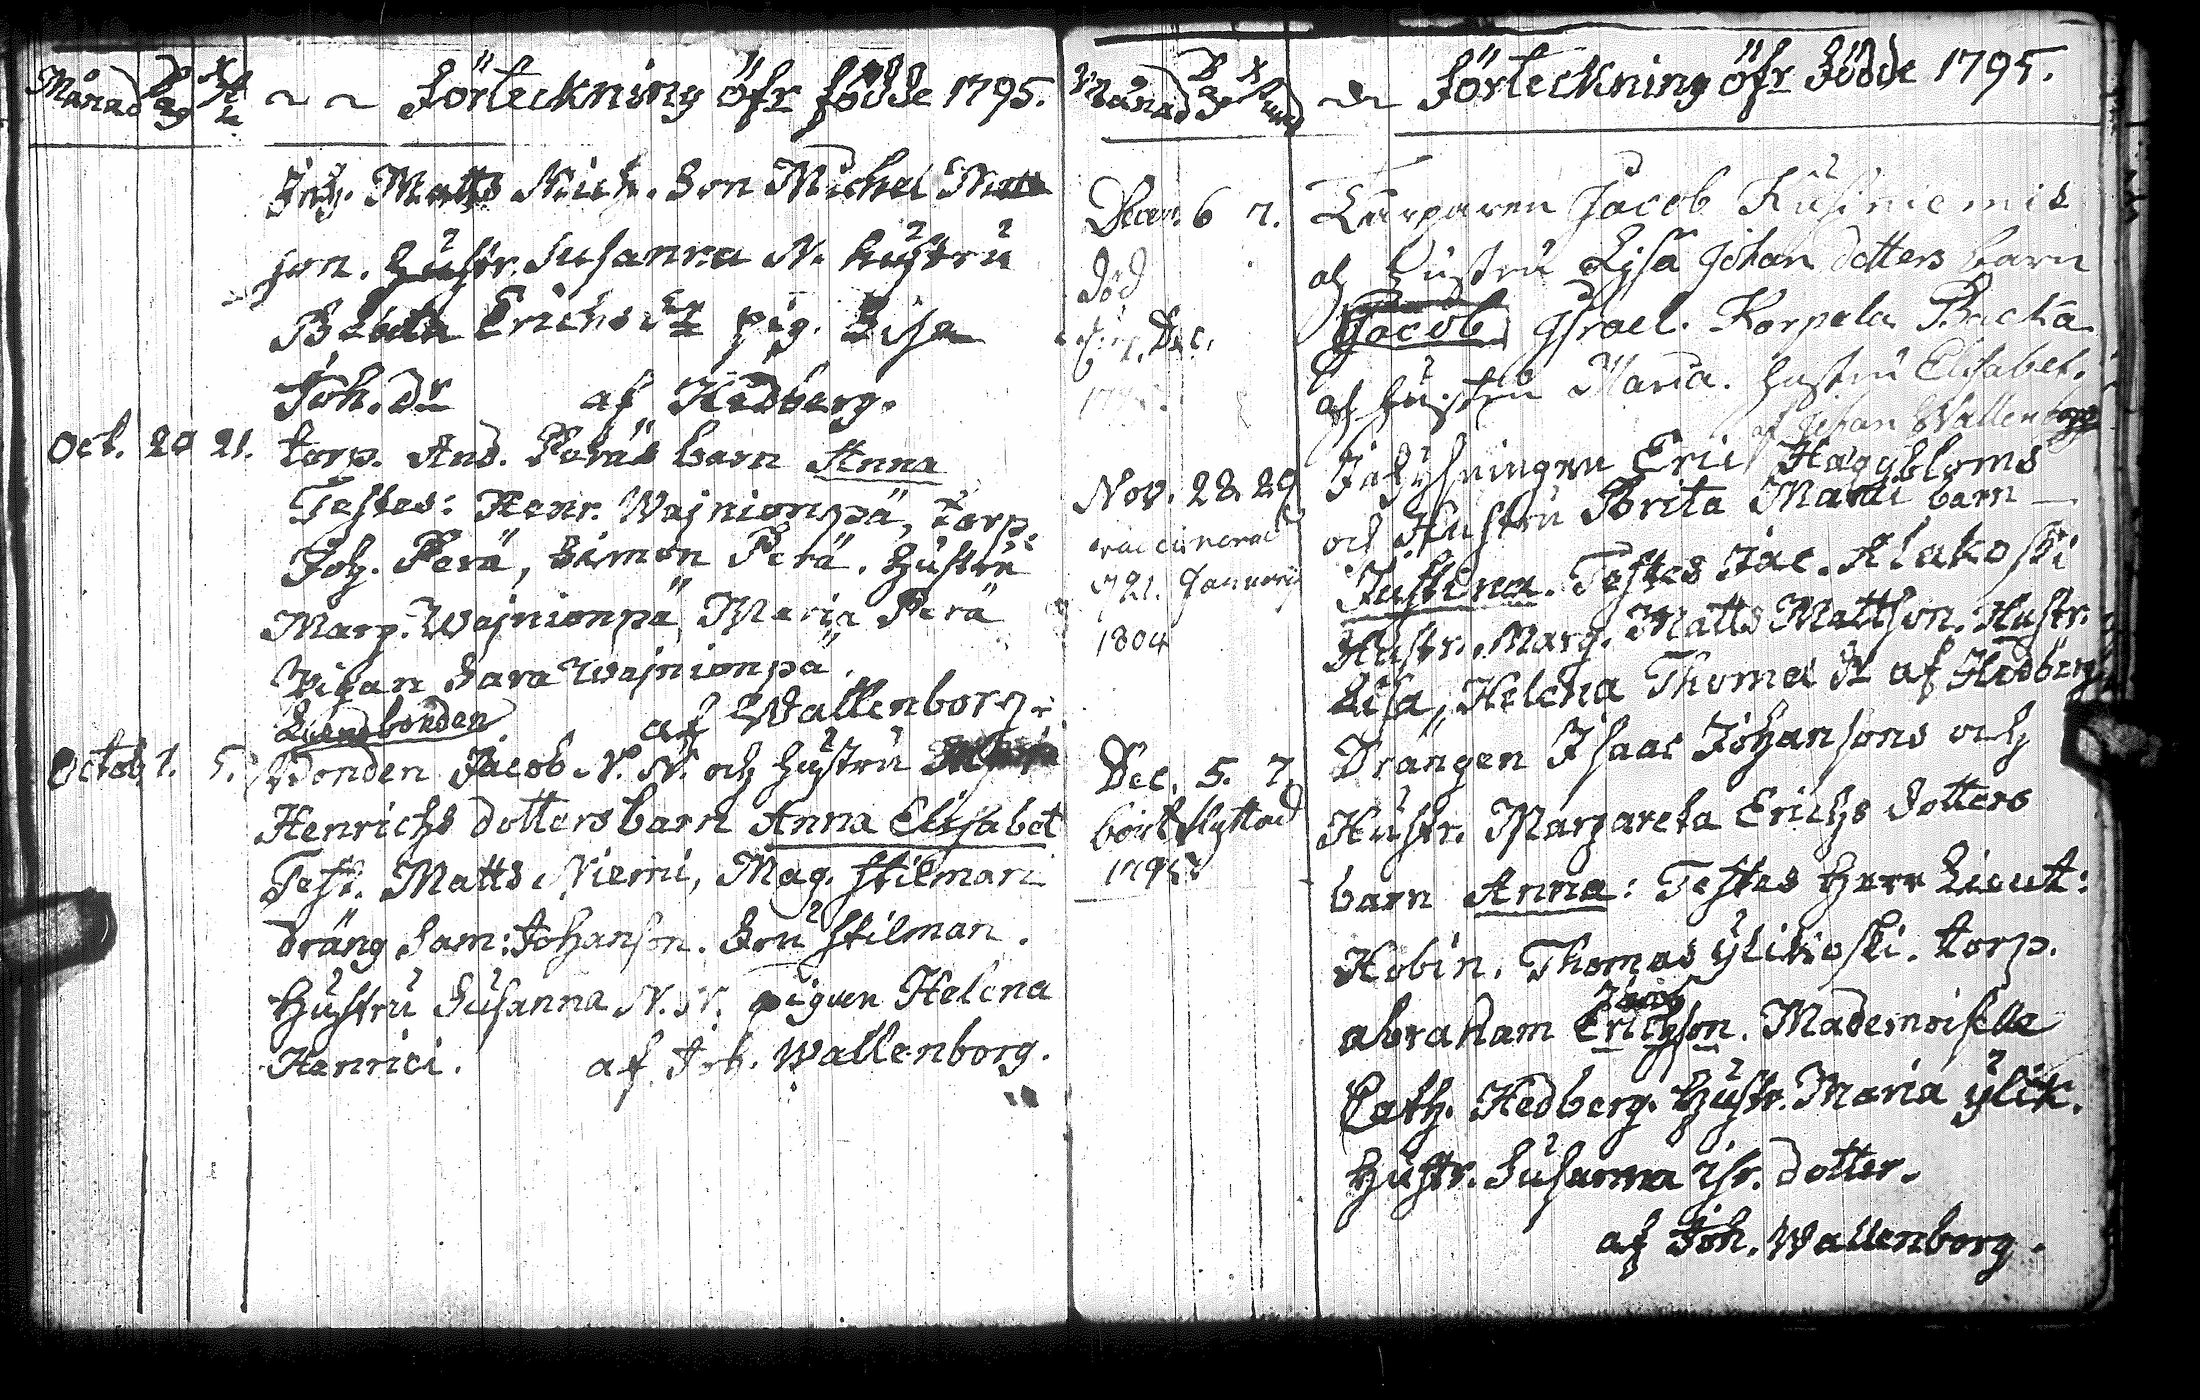 Månad Dag Xst ~ ~ Förteckning öfr födde 1795.
Inh. Matts Mich. Son Michel Matts
son. Hustr. Susanna N. hustru
Beata Erichs dr pig. Lisa
Joh. dr af Hedberg.
Oct. 20 21. torp. And. Peräs barn Anna
Testes: Henr. Wajnionpä, torp.
Joh. Perä, Simon Perä. Hustru
Marg. Wajnionpä, Maria Perä
Pigan Sara Wajnionpä.
af Wallenborg.
Landbonden
Octob. 1. 5. Bonden Jacob N. N. och hustru
Henrichs dotters barn Anna Elisabet
Test. Matts Niemi, Mag. Stilman
dräng Sam: Johanson. Stilman.
Hustru Susanna N. N. pigan Helena
Henrici. af Joh. Wallenborg.
Månad Förteckning öfr Födde 1795.
Decem. 6 7. Jacob
död och Hustru Lisa Johan dotters barn
Jacob Israel. Korpela Backa
Dec. och hustru Maria. hustru Elisabet.
af Johan Wallenborg
Nov. 28 29 Inhysningen Eric Häggbloms
och Hustru Brita Mardi barn —
vaccinerad
d 21. Januarii Justina. Testes Jac. Alakoski
1804 Hustr. Marg. Matts Mattson. Hustr.
Lisa, Helena Thomæ dr af Hedberg
Dec. 5. 7. Drängen Isaac Johansons och
bortflyttad Hustr. Margareta Erichs dotters
barn Anna: Testes Herr Lieut:
Hobin. Thomas Ylikoski. torp.
Abraham Erichson. Mademoiselle
Cath. Hedberg. Hustr. Maria Ylik.
Hustr. Susanna Isr. dotter.
af Joh. Wallenborg.